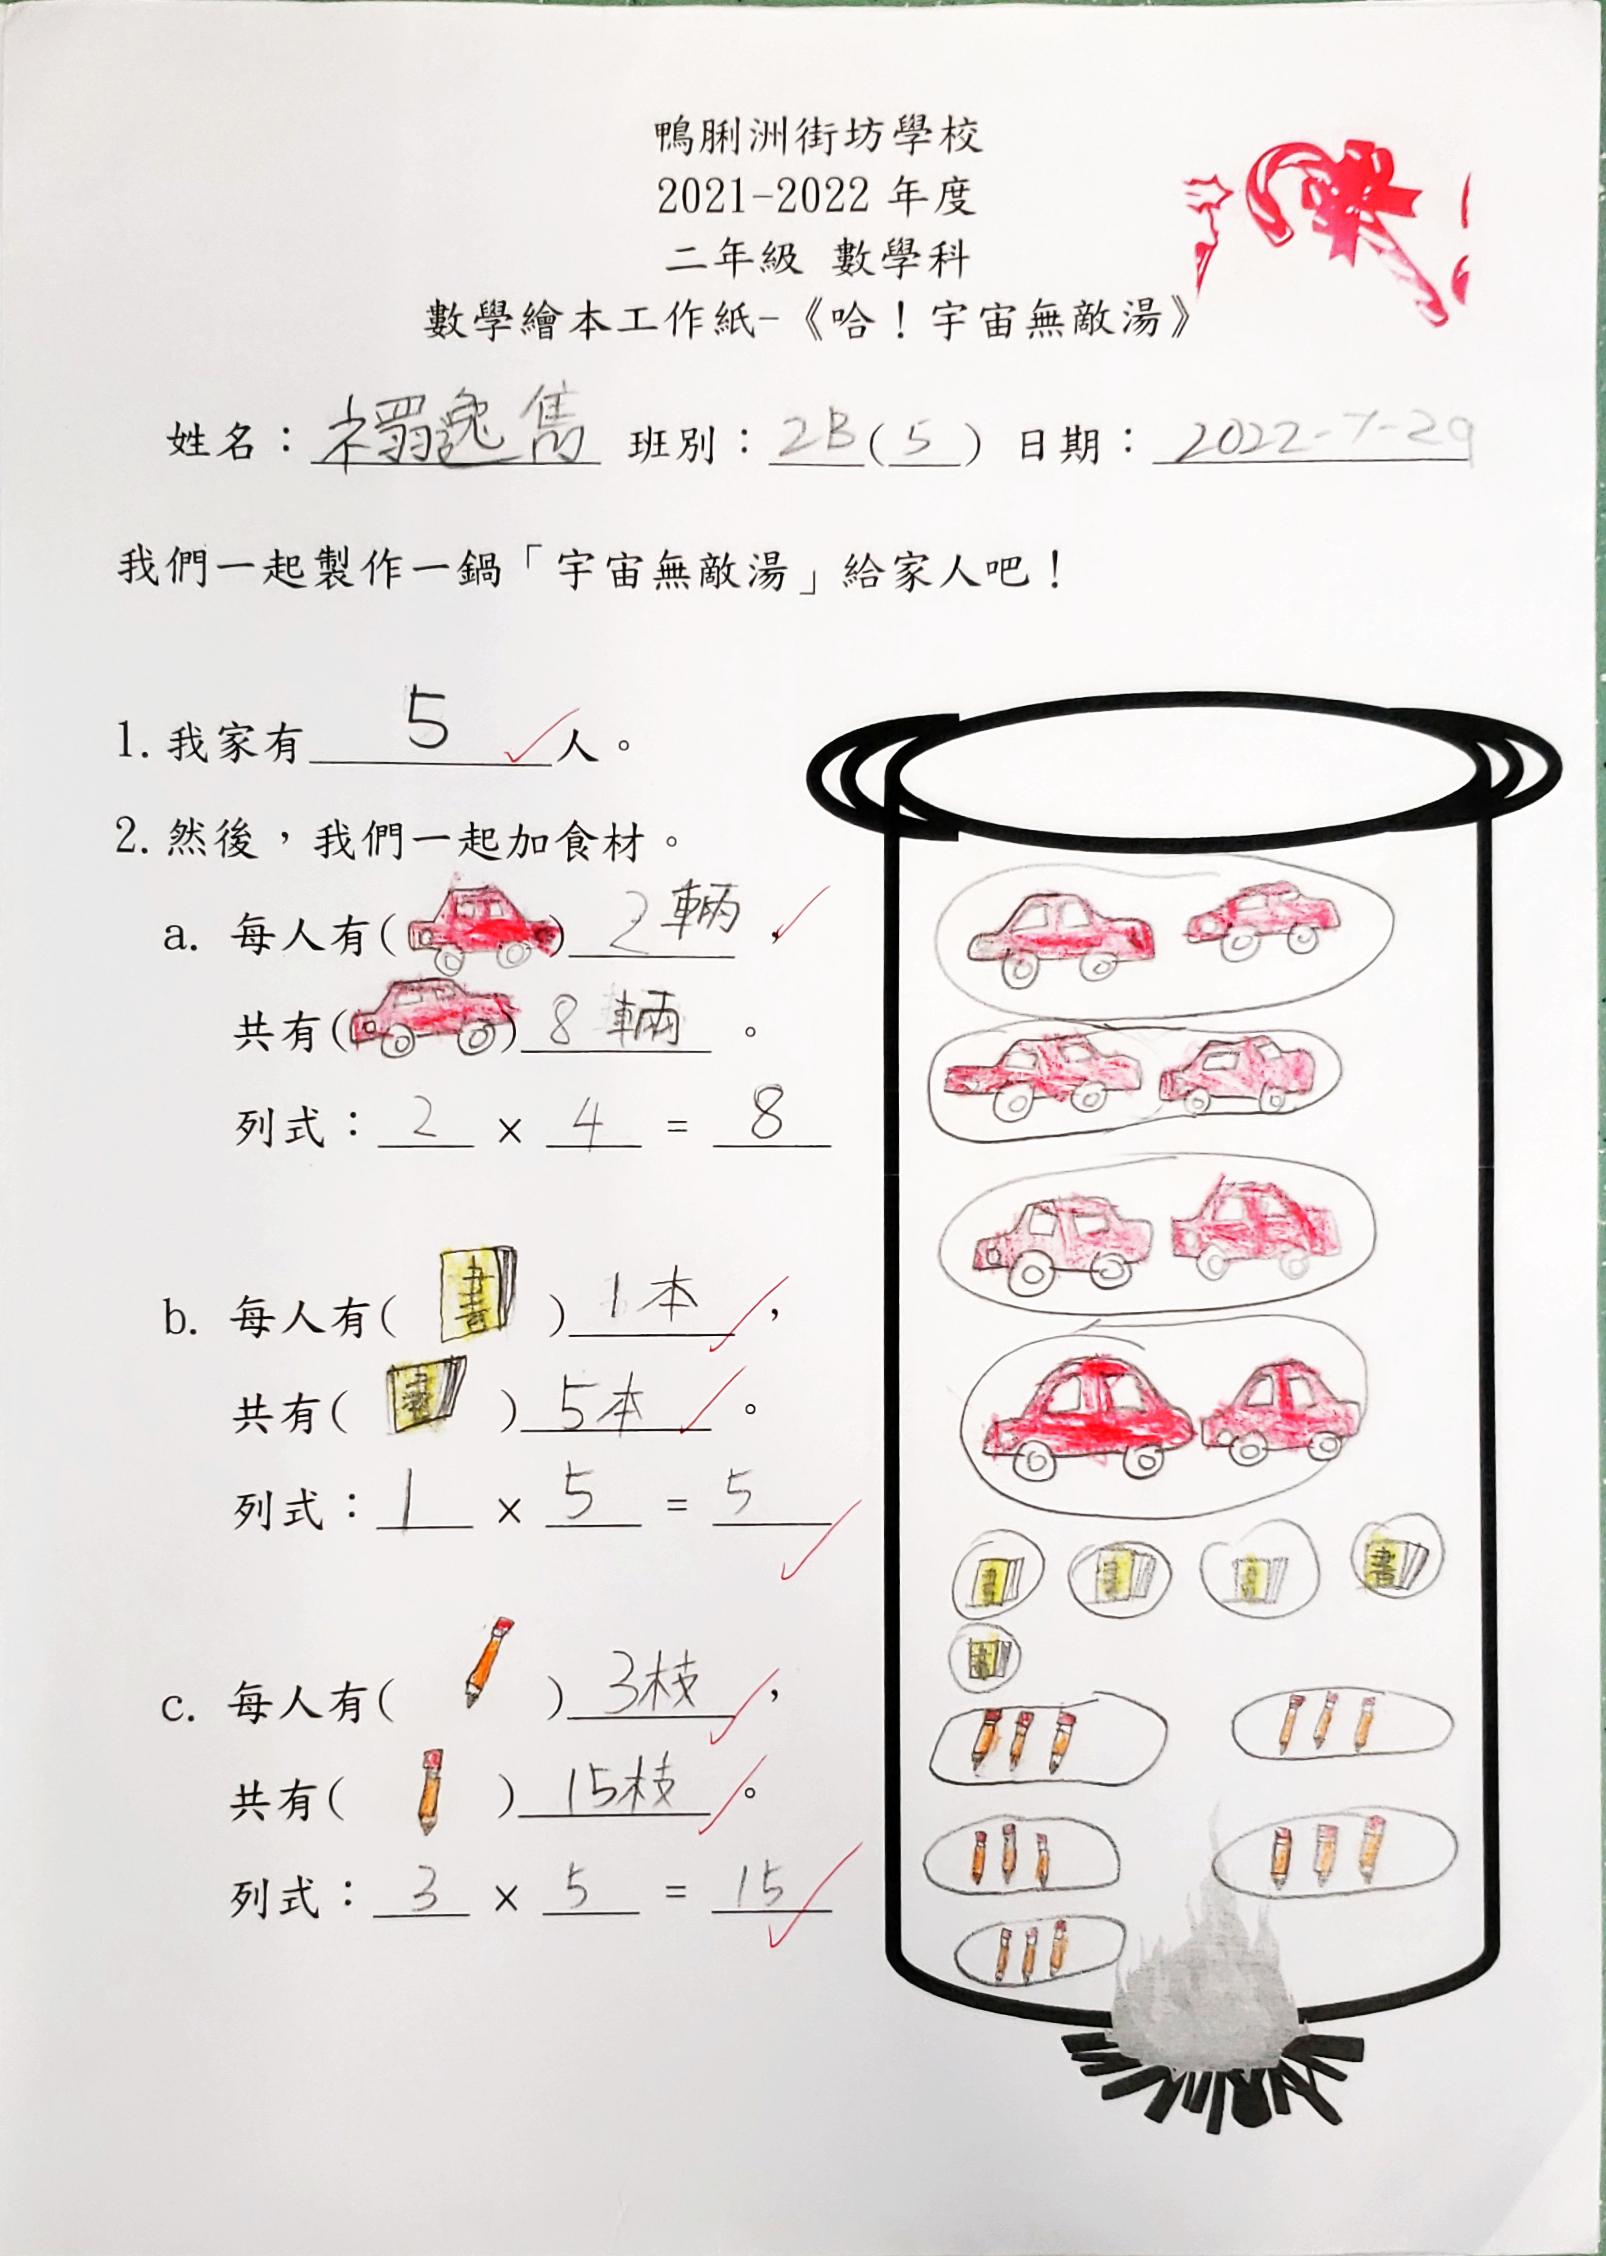 鴨脷洲街坊學校
2021-2022 年度
二年級 數學科
數學繪本工作紙-《哈！宇宙無敵湯》
姓名：禤逸雋 班別：2B(5) 日期：2022-7-29
我們一起製作一鍋「宇宙無敵湯」給家人吧！
1. 我家有 5 人。
2. 然後，我們一起加食材。
a. 每人有( ) 2輛，
共有( ) 8輛。
列式：2 × 4 = 8
b. 每人有( 書 ) 1本，
共有( 書 ) 5本。
列式：1 × 5 = 5
c. 每人有( ) 3枝，
共有( ) 15枝。
列式：3 × 5 = 15
書 書 書 書
書